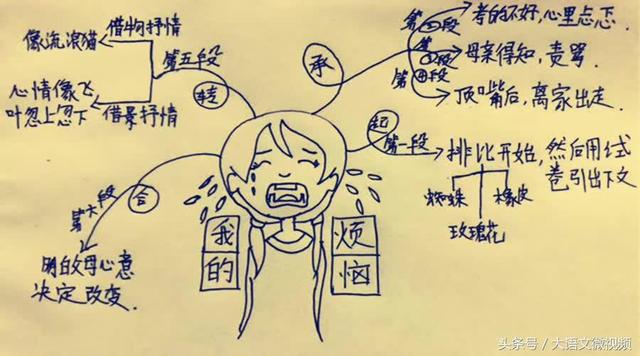 考的不好,心里忐忑.
母亲得知,责骂
顶嘴后,离家出走.
承
像流浪猫
借物抒情
第五段
心情像飞
叶忽上忽下
借景抒情
转
起
第一段
排比开始,然后用试
卷引出下文
蜘蛛
橡皮
玫瑰花
第六段
合
明白父母心意
决定改变.
我的
烦恼
头条号/大语文微视频